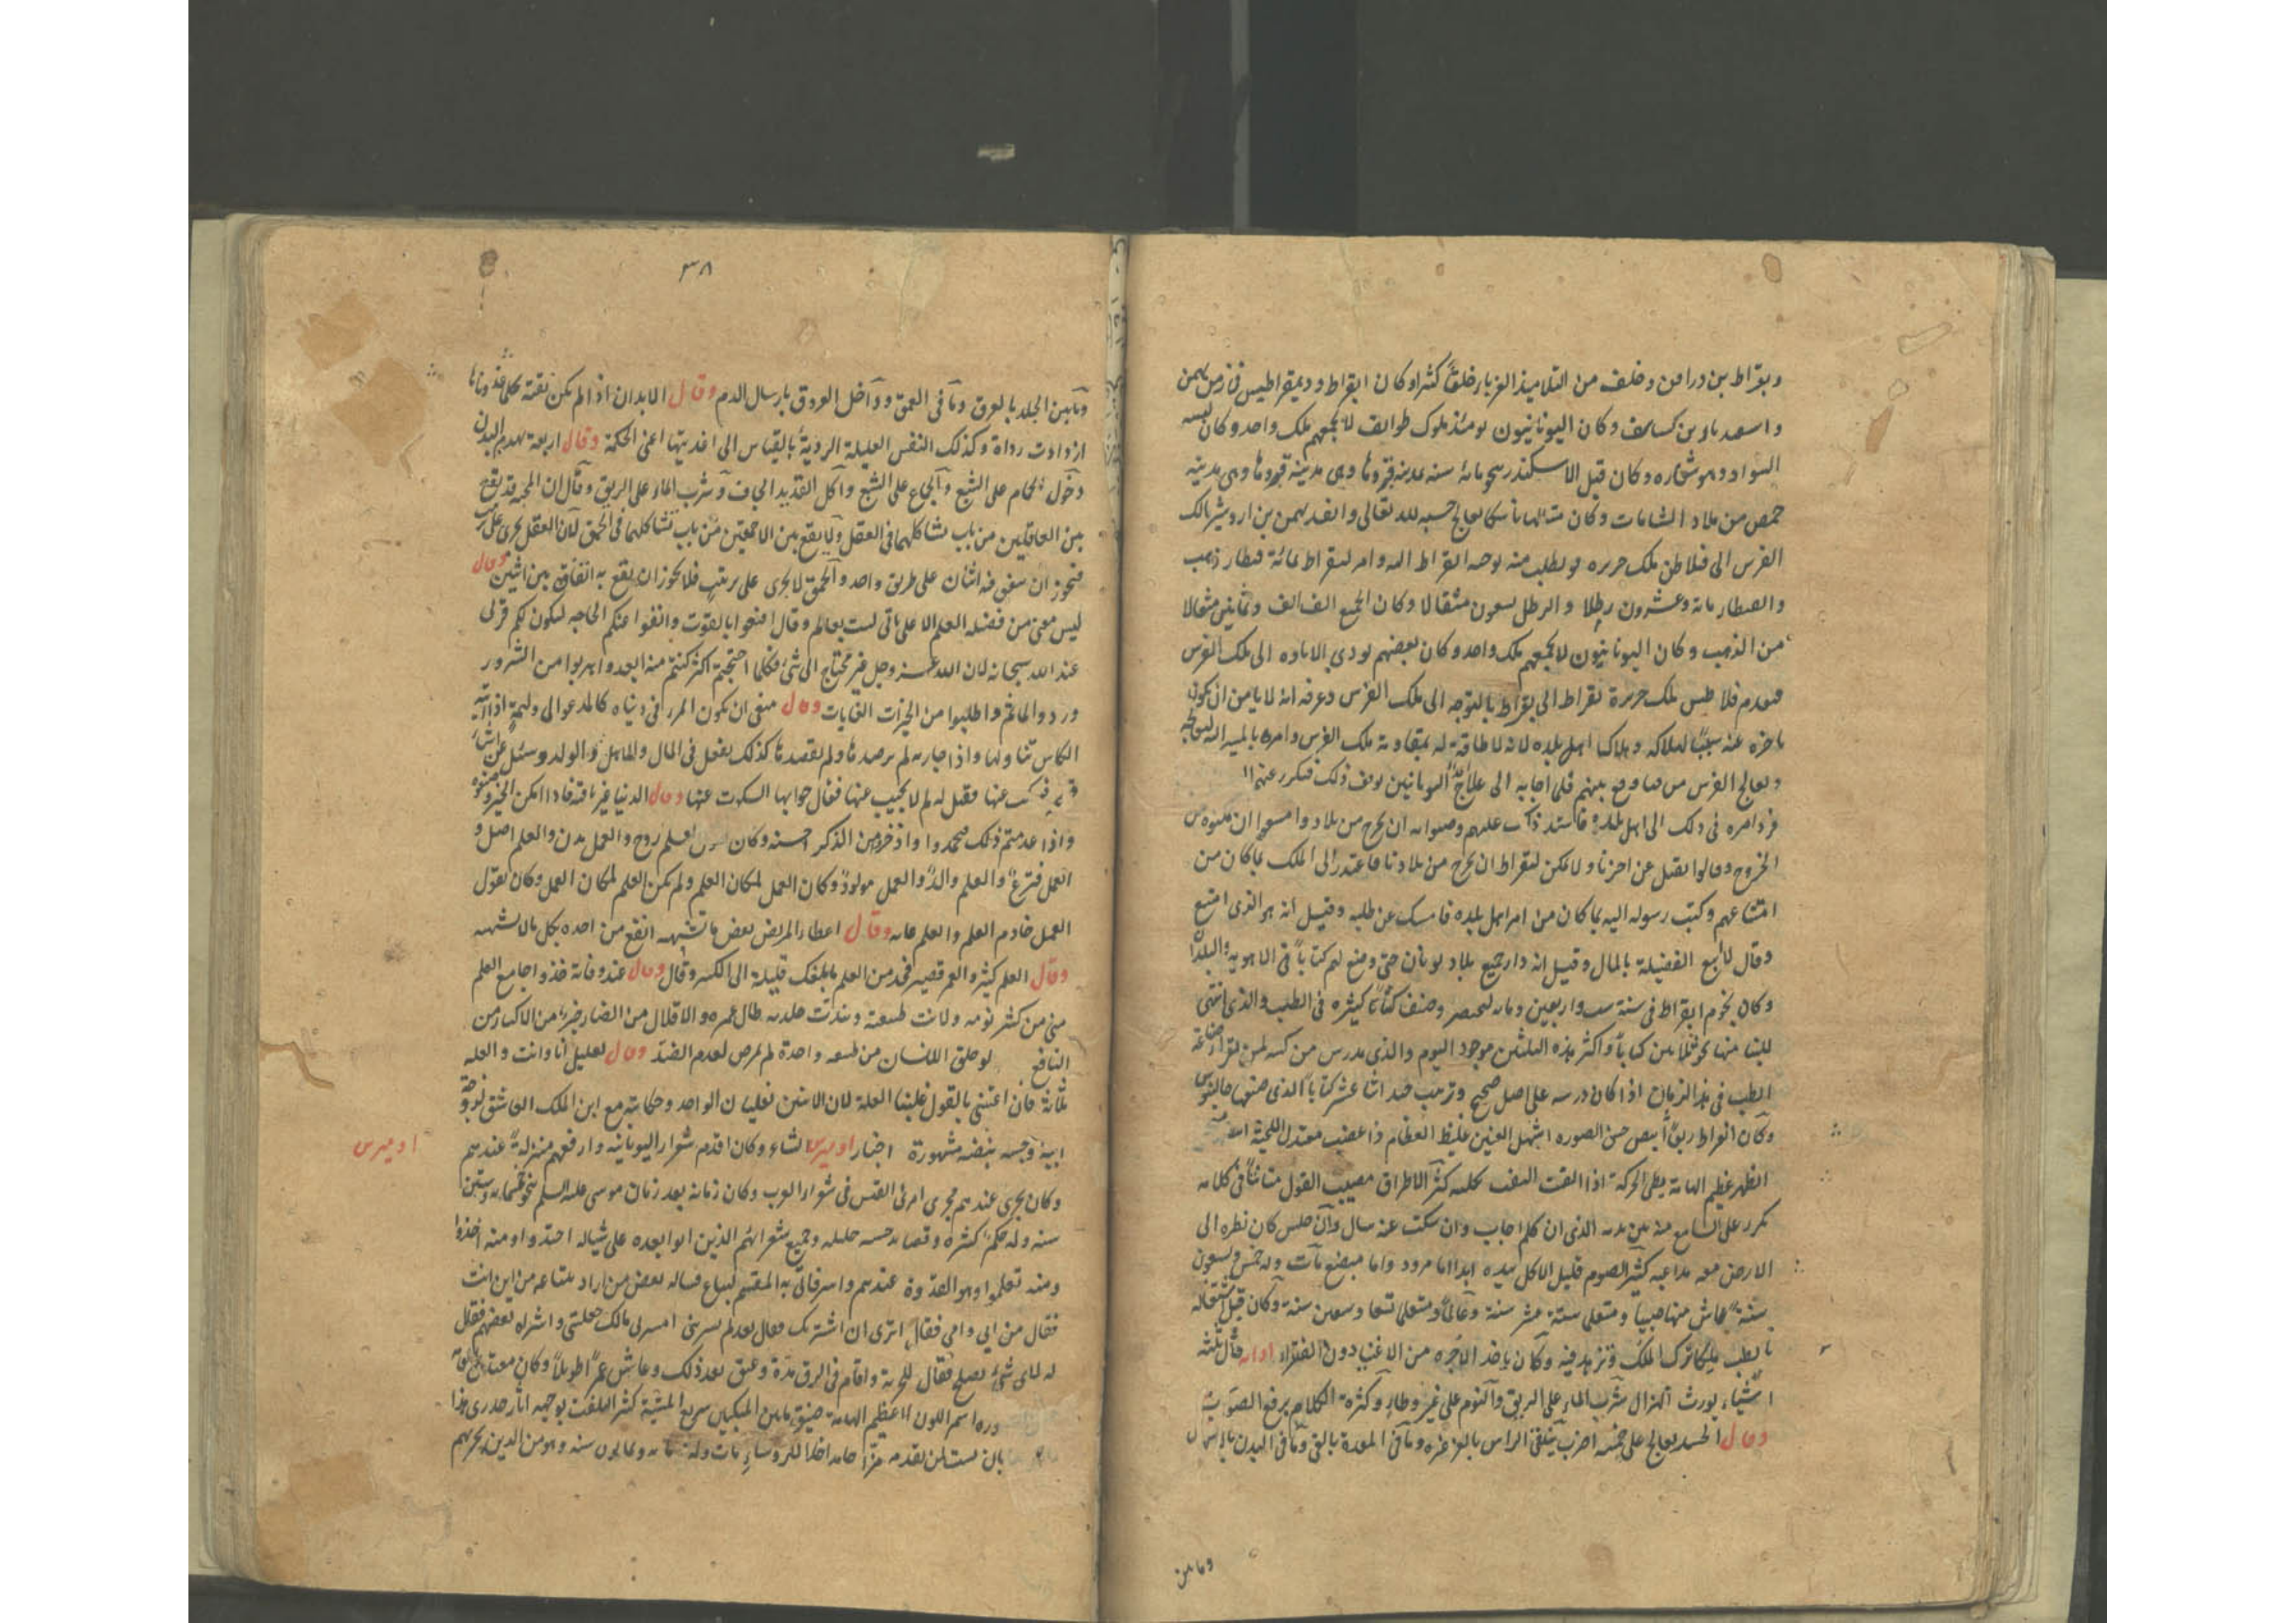 وبقراط بن دراقن وخلف من التلاميذ الغرباء خلقاً كثيرا وكان ابقراط وديمقراطيس في زمن بهمن
وكان اليونانيون يومئذ ملوك طوايف لا يجمعهم ملك واحد وكان لبسه
السواد وهو شعاره وكان قبل الاسكندر بنحو مائة سنة بمدينة قيروها وهى مدينة قيروها وهى مدينة
حمص من بلاد الشامات وكان متالها ناسكا يعالج حسبة لله تعالى وانفذ بهمن بن اردشير الملك
الفرس الى فيلاطن ملك جزيره يطلب منه توجه ابقراط اليه وامر لبقراط بمائة قنطار ذهب
والقنطار مائة وعشرون رطلا والرطل تسعون مثقالا وكان الجميع الف الف وثمانين مثقالا
من الذهب وكان اليونانيون لا يجمعهم ملك واحد وكان بعضهم يودى الاتاوه الى ملك الفرس
فتقدم فلاطس ملك جزيرة بقراط الى بقراط بالتوجه الى ملك الفرس وعرفه انه لا يامن ان يكون
تاخره عنه سبباً لهلاكه وهلاك اهل بلده لانه لا طاقة له بمقاومة ملك الفرس وامره بالمسير اليه ليعالجه
ويعالج الفرس من وباء وقع بينهم فلم اجابه الى علاج اليونانيين يوقف ذلك فتكرر عنهم
فرد امره فى ذلك الى اهل بلده فاشتد ذلك عليهم ان يخرج من بلاد وامتنعوا ان يمكنوه من
الخروج وقالوا نقتل عن اخرنا ولا يمكن لبقراط ان يخرج من بلادنا فاعتذر الى الملك بما كان من
امتناعهم وكتب رسوله اليه بما كان من امر اهل بلده فامسك عن طلبه وقيل انه هو الذى امتنع
وقال لا ابيع الفضيلة بالمال وقيل انه دار جميع بلاد يونان حتى وضع لهم كتاباً فى الاهوية والبلدان
وكان نجوم ابقراط فى سنة ست واربعين ومائة لبختنصر وصنف كتباً كثيره فى الطب والذى انتهى
الينا منها نحو ثلاثين كتاباً واكثر هذه الثلثين موجود اليوم والذى يدرس من كتبه لمن يقرا صناعة
الطب فى هذا الزمان اذا كان درسه على اصل صحيح وترتيب جيد اثنا عشر كتاباً الذى صنفها جالينوس
وكان ابقراط ربعاً ابيض حسن الصورة اشهل العينين غليظ العظام ذا عصب معتدل اللحية ابيضها منحنى
الظهر عظيم الهامة بطئ الحركة اذا التفت التفت بكليته كثير الاطراق مصيب القول متأنياً فى كلامه
يكرر على السامع منه بين يديه الذى ان كلم اجاب وان سكت عنه سال وان جلس كان نظره الى
الارض معه مداعبه كثير الصوم قليل الاكل بيده ابدا اما مرود واما مبضع مات وله خمس وتسعون
سنة عاش منها صبيا ومتعلما ستة عشر سنة وعالماً ومتعلما تسعا وسبعين سنة وكان قبل اشتغاله
بالطب مليكا ترك الملك وتزهد فيه وكان ياخذ الاجره من الاغنيا دون الفقراء ادابه قال ثلثة
اشياء يورث الهزال شرب الماء على الريق والنوم على غير وطاء وكثرة الكلام برفع الصوت
وقال الجسد يعالج على خمسة اضرب ينقى الراس بالغرغره وما فى المعدة بالقئ وما فى البدن باسهال
وما بين
٣٨
وما بين الجلد بالعرق وما فى العمق وداخل العروق بارسال الدم وقال الابدان اذا لم يكن نقية كلما غذوتها
ازدادت رداة وكذلك النفس العليلة الردية بالقياس الى اغذيتها اعنى الحكمة وقال اربعة يهدم البدن
دخول الحمام على الشبع والجماع على الشبع واكل القديد الجاف وشرب الماء على الريق وقال ان المحبة قد يقع
بين العاقلين من باب تشاكلهما فى العقل ولا يقع بين الاحمقين من باب تشاكلهما فى الحمق لان العقل يجرى على ترتيب
فيجوز ان يتفق فيه اثنان على طريق واحد والحمق لا يجرى على ترتيب فلا يجوز ان يقع به اتفاق بين اثنين وقال
ليس معى من فضيلة العلم الا علمى بانى لست بعالم وقال اقنعوا بالقوت وانفوا عنكم الحاجه ليكون لكم قربى
عند الله سبحانه لان الله عز وجل غير محتاج الى شئ فكلما احتجتم اكثر كنتم منه ابعد واهربوا من الشرور
وردوا الماثم واطلبوا من الخيرات الغايات وقال ينبغى ان يكون المرء فى دنياه كالمدعو الى وليمة اذا اتته
الكاس تناولها واذا جازته لم يرصدها ولم يقصدها كذلك يفعل فى المال والاهل والولد وسئل عن اشياء
عنها فقيل له لم لا تجيب عنها فقال جوابها السكوت عنها وقال الدنيا غير باقية فاذا امكن الخير
واذا عدمتم ذلك فتحمدوا واذخروا من الذكر احسنه وكان يقول العلم روح والعمل بدن والعلم اصل و
العمل فرع والعلم والد والعمل مولود وكان العمل لمكان العلم ولم يكن العلم لمكان العمل وكان يقول
العمل خادم العلم والعلم غاية وقال اعطاء المريض بعض ما يشتهيه انفع من اخذه بكل ما لا يشتهيه
وقال العلم كثير والعمر قصير فخذ من العلم ما يبلغك قليله الى الكثير وقال عند وفاته خذوا جامع العلم
منى من كثر نومه ولانت طبيعته ونديت جلدته طال عمره والاقلال من الضار خير من الاكثار من
النافع لو خلق الانسان من طبيعة واحدة لم يمرض لعدم الضد وقال لعليل انا وانت والعلة
ثلثة فان اعنتنى بالقول غلبنا العلة لان الاثنين يغلبان الواحد وحكايته مع ابن الملك العاشق لزوجة
ابيه وجسه نبضه مشهورة اخبار اوميرس الشاعر وكان اقدم شعراء اليونانيه وارفعهم منزلة عندهم
اوميرس
وكان يجرى عندهم مجرى امرئ القيس فى شعراء العرب وكان زمانه بعد زمان موسى عليه السلم بنحو خمسمائة وستين
سنه وله حكم كثيره وقصايد حسنه جليله وجميع شعرائهم الذين اتوا بعده على مثاله احتذوا ومنه اخذوا
ومنه تعلموا وهو القدوة عندهم واسر فاتى به المقسم ليباع فساله بعض من اراد ابتياعه من اين انت
فقال من ابى وامى فقال اترى ان اشتريك فقال بعد لم تشترنى امشير فى مالك جعلتنى واشتراه بعضهم فقال
له لاى شئ تصلح فقال للحرية واقام فى الرق مدة وعتق بعد ذلك وعاش عمراً طويلاً وكان معتدل القامة
اسمر اللون عظيم الهامة ضيق ما بين المنكبين سريع المشية كثير التلفت بوجهه اثار جدرى هذا
بان لمن تقدمه مزاحا مداخلا للروساء مات وله مائة وثمانون سنه وهو من الذين